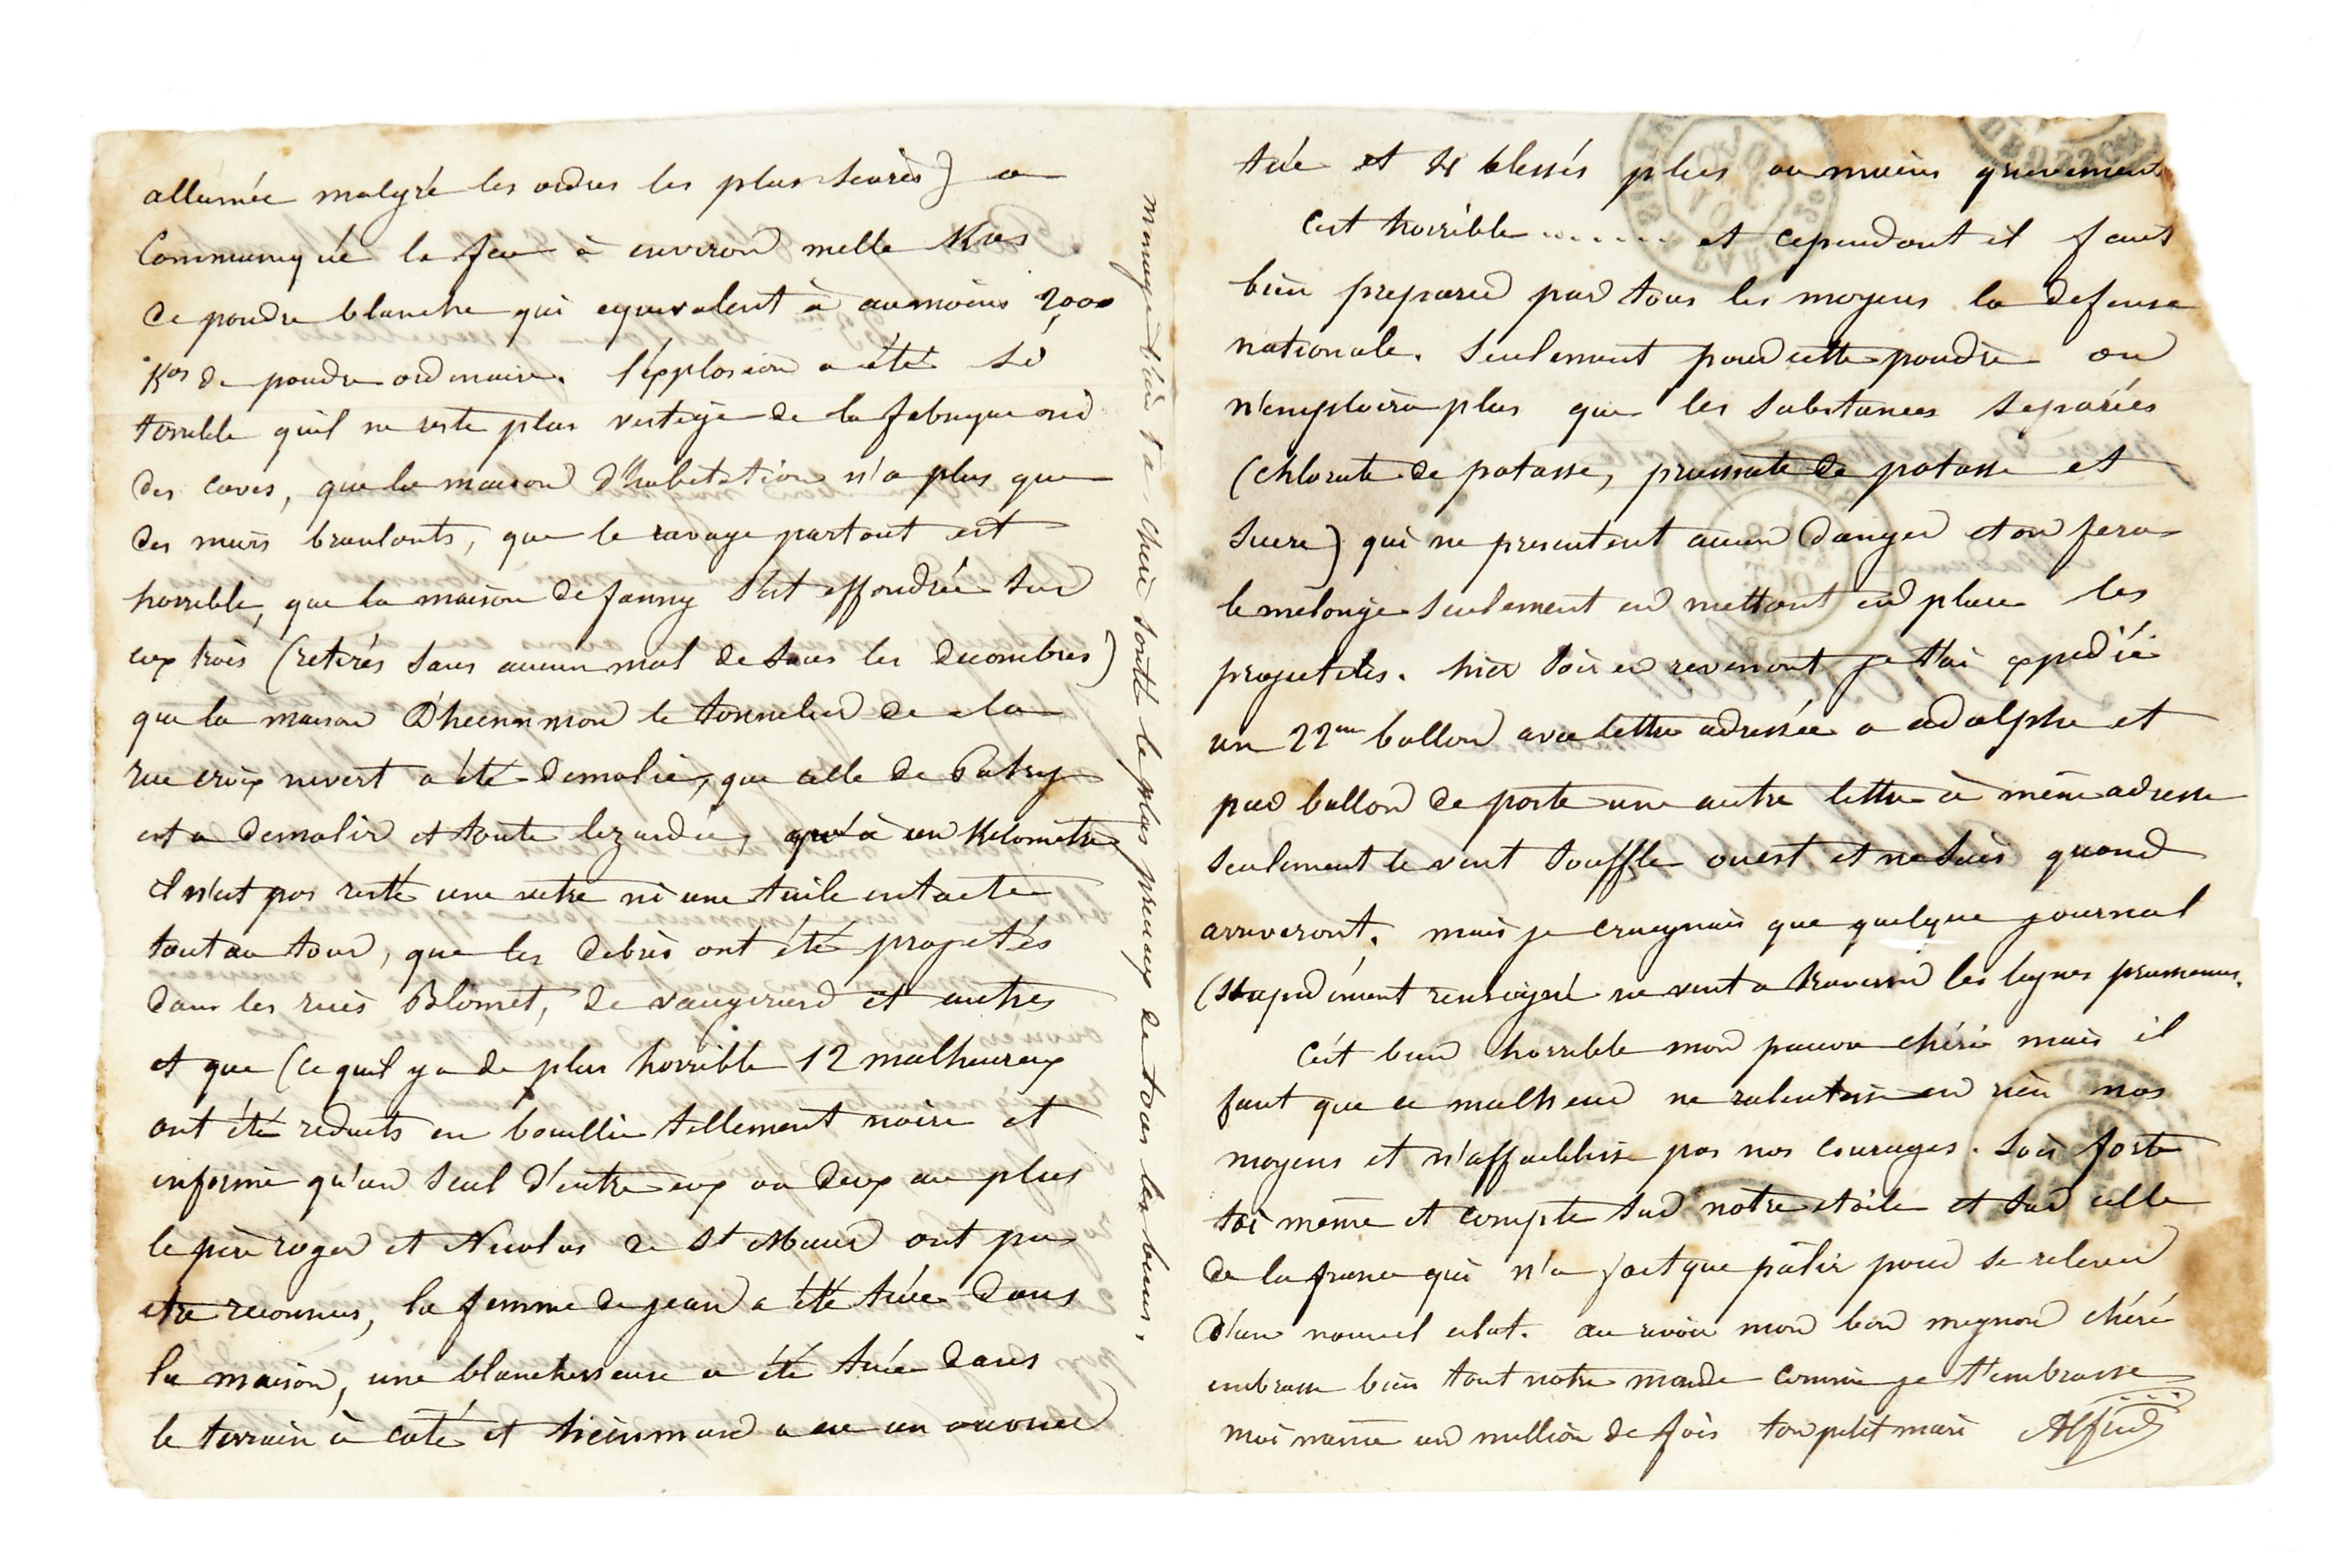 allumée malgré les ordres les plus sevères) a
Communiqué le feu à environ mille Kos
de poudre blanche qui equivalent à aumoins 2000
Kos de poudre ordinaire. l'explosion a été si
terrible qu'il ne reste plus vestige de la fabrique ni
des caves, que la maison d'habitation n'a plus que
des murs branlants, que le ravage partout est
horrible, que la maison de fanny s'est effondrée sur
eux trois (retirés sans aucun mal de sous les decombres)
que la maison le tonnelier de la
rue croix nivert a été demolie, que celle de Patry
est a demolir et toute lezardée, qu'à un Kilomètre
il n'est pas resté une vitre ni une tuile intacte
tout au tour, que les debris ont été projetés
dans les rues Blomet, de vaugirard et autres
et que (ce quil y a de plus horrible 12 malheureux
ont été reduits en bouillie tellement noire et
informe qu'un seul d'entre eux ou deux au plus
le père roger et Nicolas de St Maur ont pu
etre reconnus, la femme de jean a été tuée dans
la maison, une blanchisseuse a été tuée dans
le terrain à coté et a eu un ouvrier
menage l'air ta chère santé le plus precieux de tous les biens.
tué et blessés plus ou moins grievement
C'est horrible ....... et cependant il faut
bien preparer par tous les moyens la defense
nationale. Seulement pour cette poudre on
n'emploira plus que les substances separées
(chlorate de potasse, prussiate de potasse et
sucre) qui ne presentent aucun danger et on fera
le mélange seulement en mettant en place les
projectiles. hier soir en revenant je t'ai expedié
un 22me ballon avec lettre adressée a adolphe et
par ballon de poste une autre lettre à même adresse
seulement le vent souffle ouest et ne sais quand
arriveront. mais je craignais que quelque journal
(stupidement renseigné ne vint a traverser les lignes prussiennes.
C'est bien horrible mon pauvre chéri mais il
faut que ce malheur ne ralentisse en rien nos
moyens et n'affaiblisse pas nos courages. Sois forte
toi même et compte sur notre etoile et sur celle
de la france qui n'a fait que pâlir pour se relever
d'un nouvel eclat. au revoir mon bon mignon chéri
embrasse bien tout notre monde comme je t'embrasse
moi même un million de fois ton petit mari Alfred